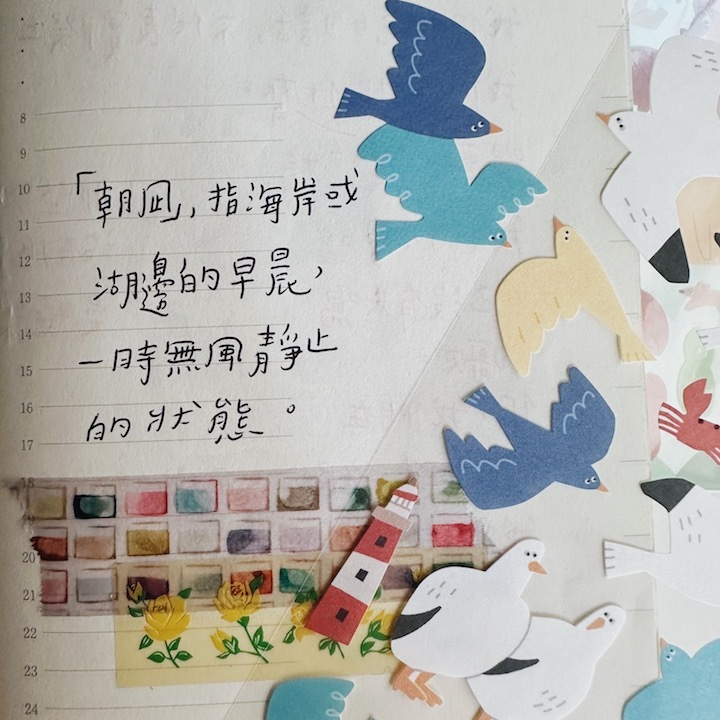 8
9
10
11
12
13
14
15
16
17
18
19
20
21
22
23
24
「朝凪」,指海岸或
湖邊的早晨,
一時無風靜止
的狀態。